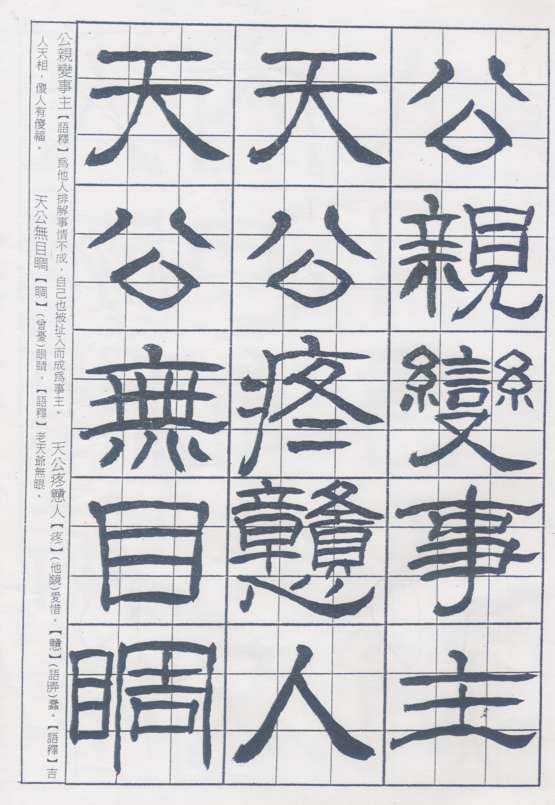 公親變事主
天公疼戇人
天公無目睭
公親變事主【語釋】為他人排解事情不成，自己也被扯入而成為事主。　天公疼戇人【疼】(他鏡)愛惜。【戇】(語弄)蠢。【語釋】吉
人天相，傻人有傻福。　天公無目睭【睭】(曾憂)眼睛。【語釋】老天爺無眼。